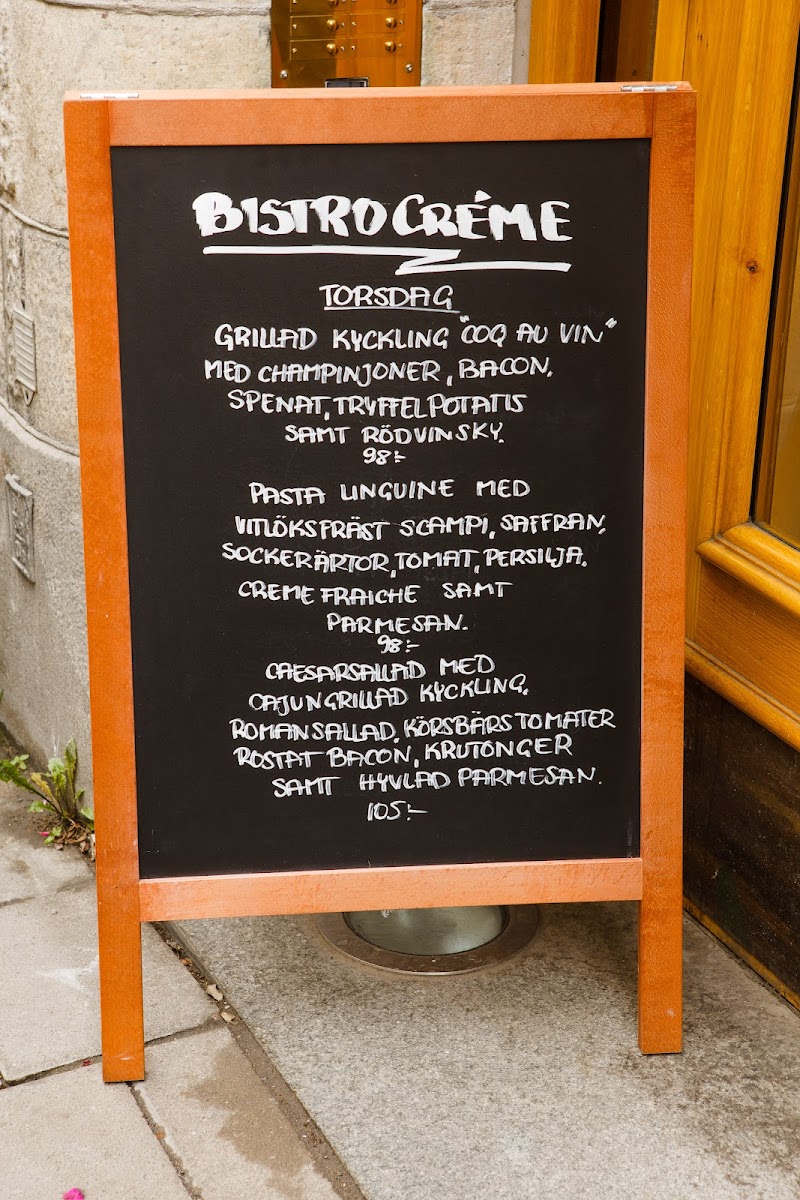 BISTRO CRÉME
TORSDAG
GRILLAD KYCKLING "COQ AU VIN"
MED CHAMPINJONER, BACON,
SPENAT, TRYFFELPOTATIS
SAMT RÖDVINSKY.
98:-
PASTA LINGUINE MED
VITLÖKSFRÄST SCAMPI, SAFFRAN,
SOCKERÄRTOR, TOMAT, PERSILJA,
CREME FRAICHE SAMT
PARMESAN.
98:-
CAESARSALLAD MED
CAJUNGRILLAD KYCKLING,
ROMANSALLAD, KÖRSBÄRSTOMATER
ROSTAT BACON, KRUTONGER
SAMT HYVLAD PARMESAN.
105:-